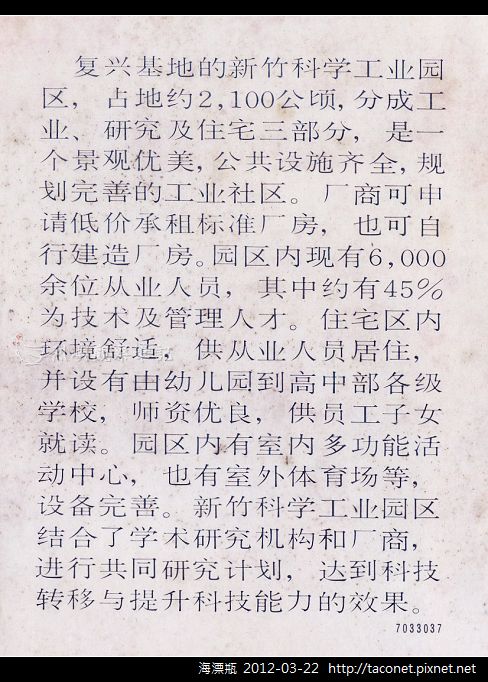 复兴基地的新竹科学工业园
区，占地约2,100公顷，分成工
业、研究及住宅三部分，是一
个景观优美，公共设施齐全，规
划完善的工业社区。厂商可申
请低价承租标准厂房，也可自
行建造厂房。园区内现有6,000
余位从业人员，其中约有45%
为技术及管理人才。住宅区内
环境舒适，供从业人员居住，
并设有由幼儿园到高中部各级
学校，师资优良，供员工子女
就读。园区内有室内多功能活
动中心，也有室外体育场等，
设备完善。新竹科学工业园区
结合了学术研究机构和厂商，
进行共同研究计划，达到科技
转移与提升科技能力的效果。
7033037
海漂瓶 2012-03-22 http://taconet.pixnet.net